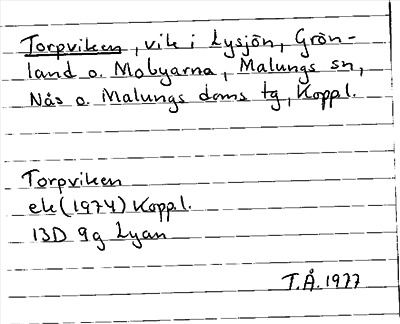 Torpviken, vik i Lysjön, Grön-
land o. Mobyarna, Malungs sn,
Nås o. Malungs doms tg, Koppl.
Torpviken
ek (1974) Koppl.
13D 9g Lyan
T.Å. 1977